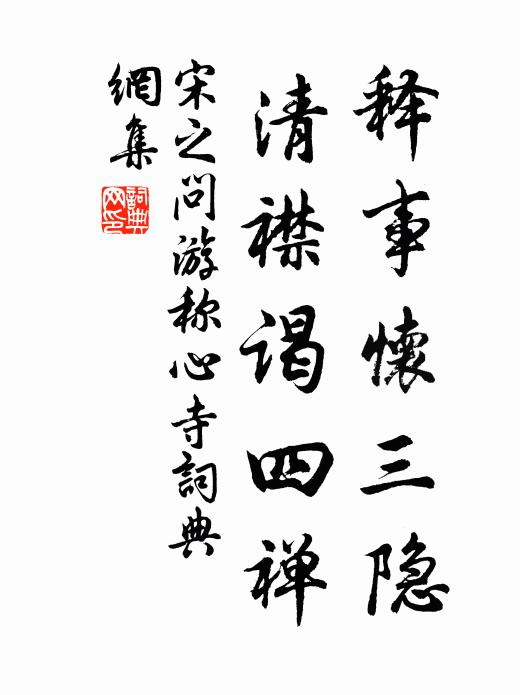 释事懷三隐
清襟谒四禅
宋之问游称心寺詞典
網集
詞典网印